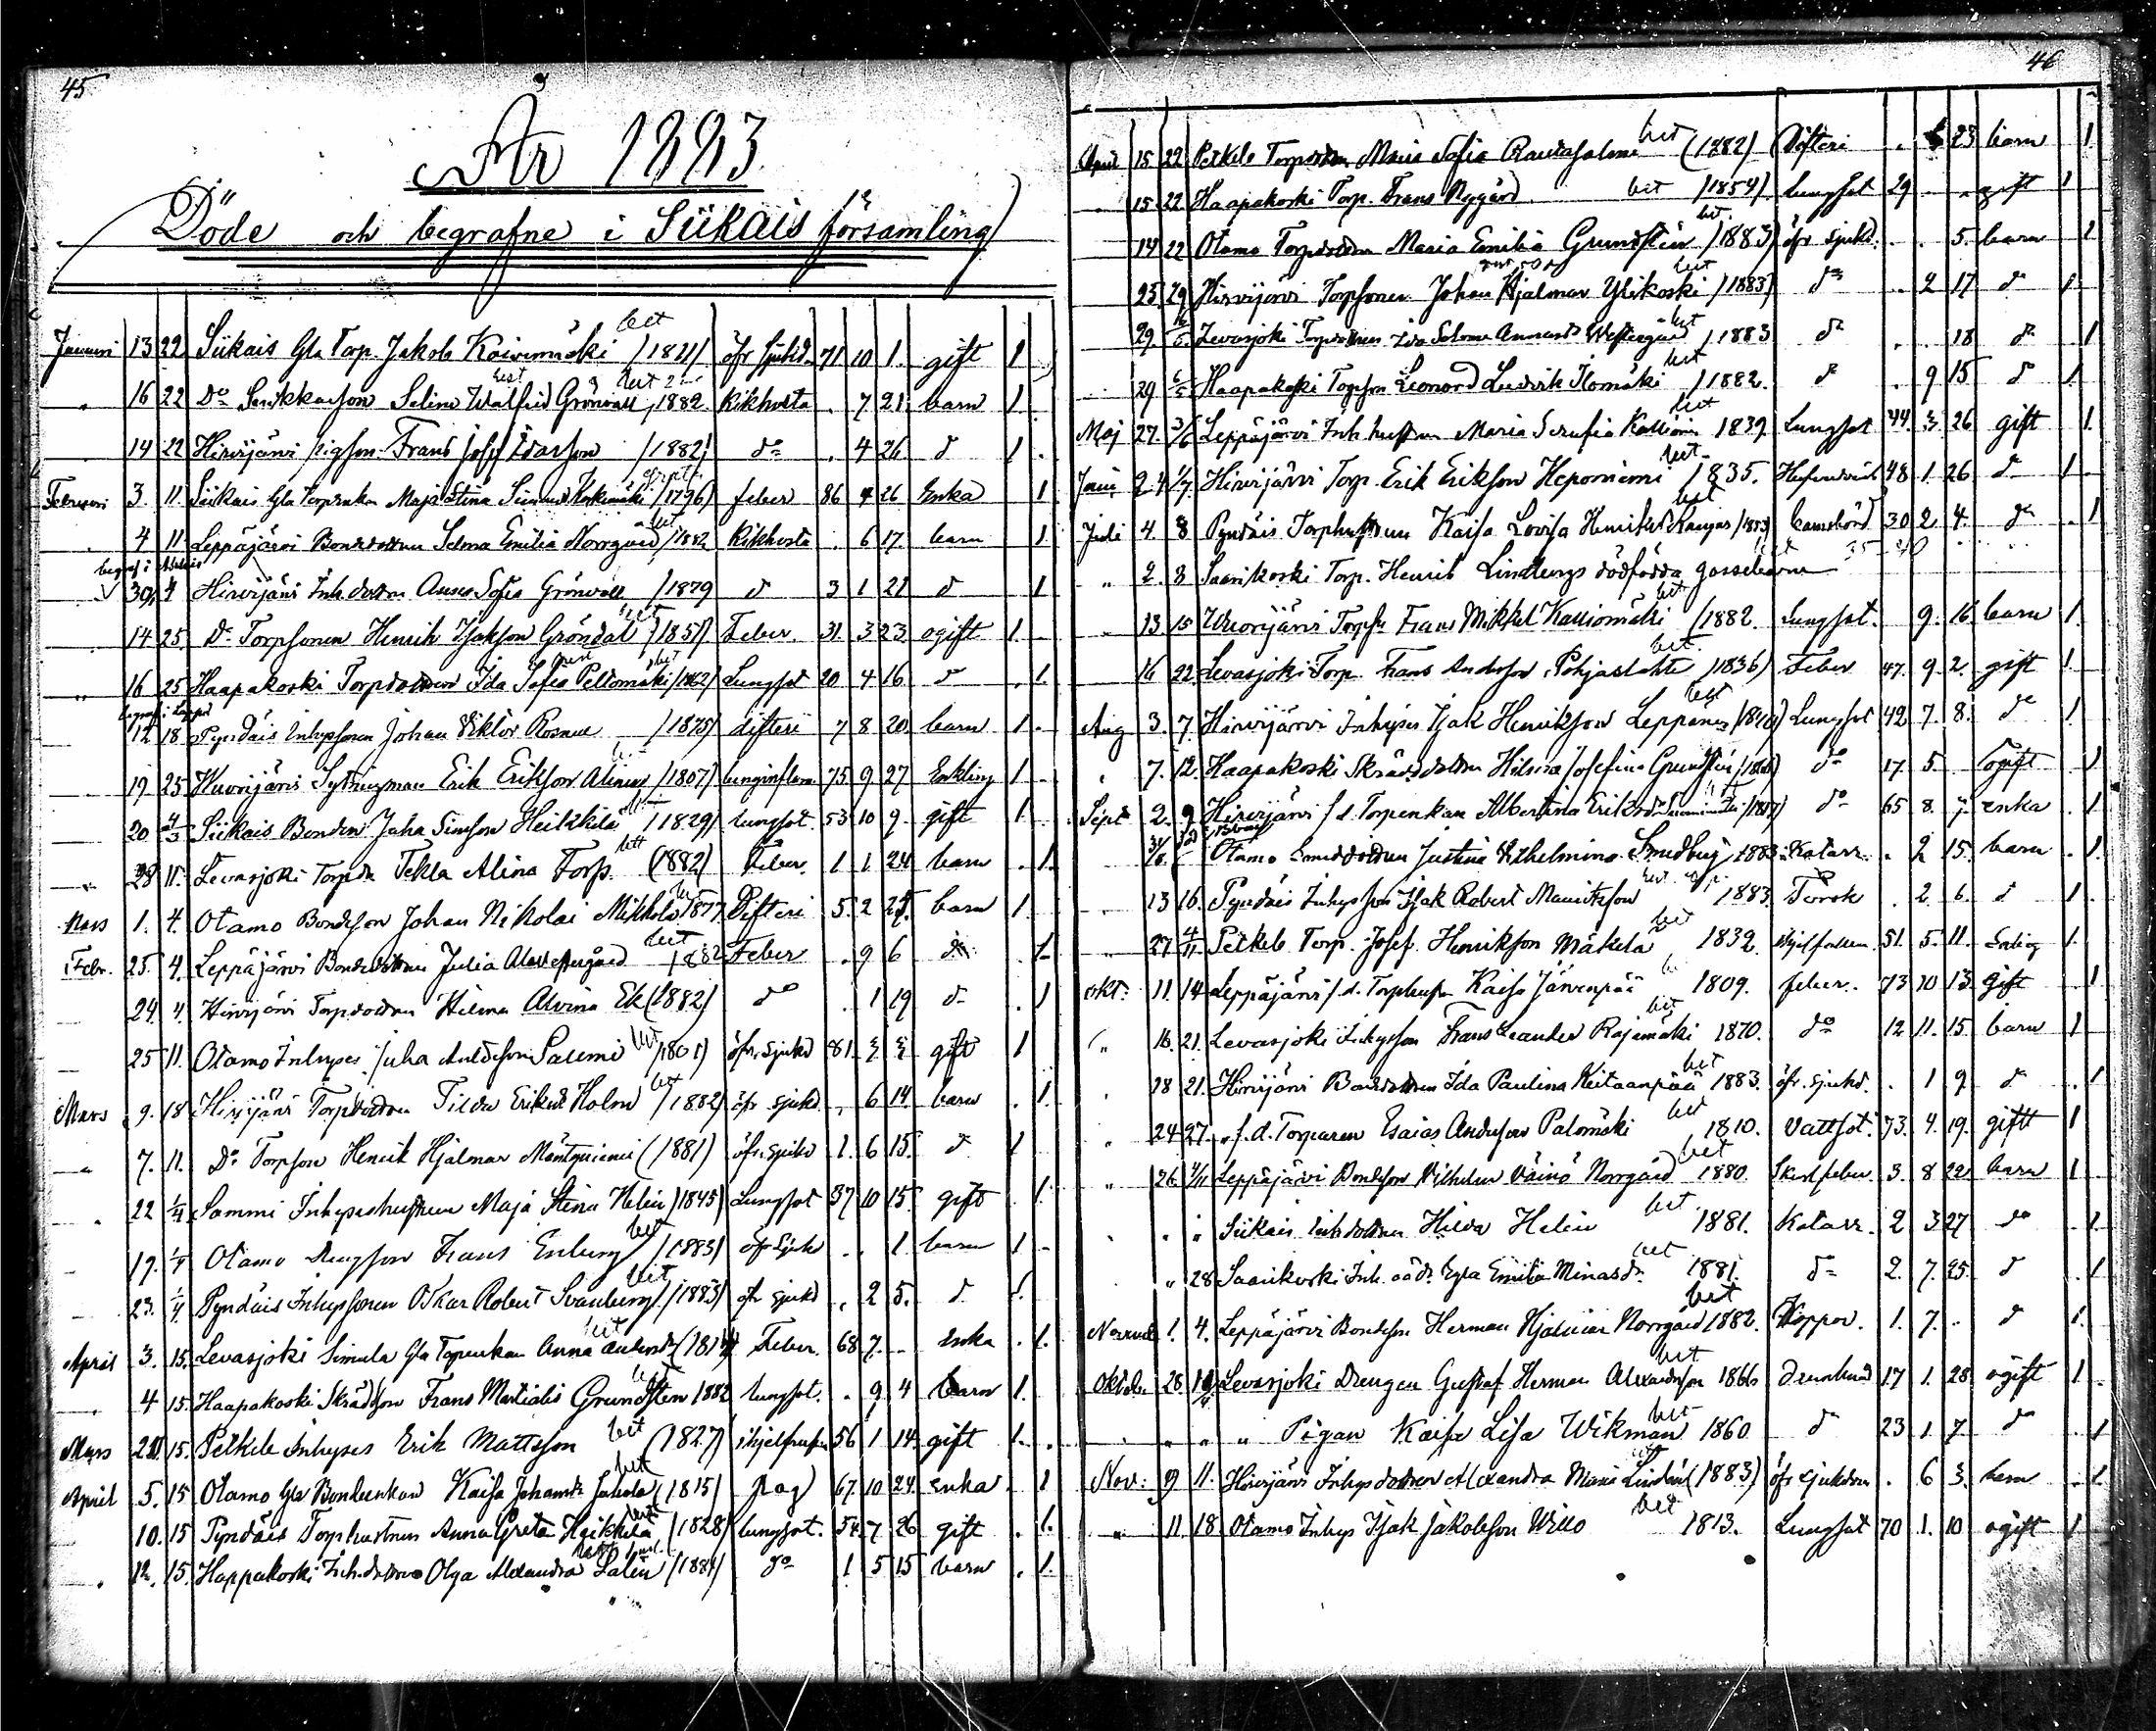 45
År 1883.
Döde och begrafne i Siikais församling
Januari 13 22 Siikais Gla Torp. Jakob Koivumäki bet /1811/ öfr sjukd. 71 10 1. gift 1
" 16 22 Do Walfrid Grönvall bet /1882. Kikhosta . 7 21. barn 1
14 22 Hirvijärvi Pigson Frans Josef /1882/ do . 4 26 d 1.
Februari 3. 11. Siikais Gla Maja Stina /1796/ feber 86 4 26 Enka 1
4 11 Leppäjärvi Bondedottren Selma Emilia Norrgård bet /1882 Kikhosta . 6 17. barn 1
begraf i
30/1 4 Hirvijärvi Inh. dottren Sofia Grönvall /1879 d 3 1 21 d 1
14 25 Do Torpsonen Henrik Isaksson Gröndal bet /1851/ Feber. 31. 3 23 ogift 1.
" 16 25 Haapakoski Torpdottren Ida Sofia Peltomäki bet /1862/ Lungsot 20 4 16. d . 1.
begraf i
12 18 Pyndäis Inhyssonen Johan Viktor /1875/ difteri 7 8 20. barn 1.
19 25 Hirvijärvi Sytningman Erik Eriksson /1807/ lunginflam. 75. 9 27 Enkling 1
20 4/3 Siikais Bonden Juha Simsson Heikkilä /1829/ lungsot. 53 10 9. gift 1
28 11. Levasjoki Torpdr Tekla Alina Fors bet (1882) Feber. 1 1 24 barn . 1.
Mars 1. 4. Otamo Bondeson Johan Nikolai Mikkola bet 1877. Difteri 5. 2 barn 1
Febr. 25. 4. Leppäjärvi Bondedottren Julia bet 1882 Feber . 9 6 d . 1
24. 4. Hirvijärvi Torpdottren Hilma Alvina Ek (1882) do . 1 19 d . 1
25 11. Otamo Inhyses Juha Salemi bet /1801/ öfr. sjukd 81. gift 1
Mars 9. 18 Hirvijärvi Torpdottren Tilda Holm bet /1882/ öfr sjukd . 6 14. barn . 1.
7. 11. Do Torpson Henrik Hjalmar (1881) öfr. sjukd 1. 6 15. d 1
22 1/4 Sammi Inhyseshustrun Maja Stina Helen /1845/ Lungsot 37 10 15. gift . 1.
19. 1/4 Otamo Drengson Frans Enberg bet /1883/ öfr sjukd . . 1 barn 1.
23. 1/4 Pyndäis Inhyssonen Oskar Robert Svanberg bet /1883/ öfr sjukd . 2 5. d. 1.
April 3. 15. Levasjoki Simula Gla Torpenkan Anna bet Feber. 68 7. Enka . 1.
4 15. Haapakoski Skrädson Frans Martialis Grundsten bet 1882 lungsot. . 9 4 barn 1.
Mars 15. Petkele Inhyses Erik Mattsson bet (1827) ihjelfrusen 56 1 14. gift 1.
April 5. 15 Otamo Gla Bondeenkan Kaisa bet /1815/ slag 67. 10 24. Enka . 1
10. 15 Pyndäis Torphustrun Anna Greta Heikkilä bet /1828/ lungsot. 54. 7 26 gift . 1.
12. 15. Haapakoski Inh. dottren Olga Alexandra Salen /1881/ do 1 5 15 barn . 1.
46
April 15. 22 Petkele Torpdottren Maria Sofia Rautasalmi bet (1882) Difteri . 23 barn 1
" 15 22 Haapakoski Torp. Frans Nygård bet /1854/ Lungsot 29 gift 1
14 22 Otamo Torpdottren Maria Emilia Grundsten bet. /1883/ öfr sjukd. . . 5. barn 1
25 29 Hirvijärvi Torpsonen Johan Hjalmar Ylikoski bet /1883/ do . 2 17 d 1.
29 Levasjoki Torpdottren Ida Salome Westergård bet /1883 do . . 18 d 1
29 6/5 Haapakoski Torpson Leonard Ludvik Ilomäki bet /1882. d . 9 15 d 1.
Maj 27. 3/6 Leppäjärvi Inh. hustrun Maria Serafia bet 1839 Lungsot 44. 3. 26 gift 1.
Juni 24 1/7 Hirvijärvi Torp. Erik Eriksson Heponiemi bet 1835. 48 1. 26 d 1
Juli 4. 8 Pyndäis Torphustrun Kaisa Lovisa bet /1853/ barnsbörd 30 2 4. do . 1
" 2. 8 Saarikoski Torp. Henrik Lindbergs dödfödda gossebarn
" 13 15 Torpsn Frans Mikkel Kalliomäki bet /1882. Lungsot. 9. 16. barn 1.
16 22. Levasjoki Torp. Frans Andersson Pohjaslahti bet. /1836/ Feber 47. 9. 2. gift 1.
Aug 3. 7. Hirvijärvi Inhyses Isak Henriksson Leppänen bet Lungsot 42 7. 8. do 1
" 7. 12. Haapakoski Skräddsdottren Hilma Josefina Grundsten /1866/ do 17 5. ogift . 1
Sept 2. 9. Hirvijärvi f.d. Torpenkan Albertina do 65 8. 7. enka . 1
Otamo Smeddottren Justina Wilhelmina Smedberg 1883. Katarr . 2 15. barn . 1.
13 16. Pyndäis Inhysson Isak Robert Mauritzson 1883. Torsk . 2. 6. d 1.
27 Petkele Torp. Josef Henriksson Mäkelä bet 1832. 51. 5. 11. Enkling 1.
Okt: 11. 14 Leppäjärvi f.d. Torphustru Kaisa Järvenpää bet 1809. feber. 73 10 13. gift 1
" 16. 21. Levasjoki Inhysson Frans Leander Rajamäki bet 1870. do 12 11. 15. barn 1
18 21. Hirvijärvi Bondedottren Ida Paulina Keitaanpää bet 1883. öfr. sjukd. . 1 9. d . 1
" 24 27. " f.d. Torparen Esaias Andersson Palomäki bet 1810. Vattsot. 73. 4. 19. gift 1
" 26 4/11 Leppäjärvi Bondeson Wilhelm Väinö Norrgård bet 1880. Skarl. feber. 3. 8 22. barn 1
" " Siikais Inh dottren Hilda Helen bet 1881. Katarr. 2 3 27 do . 1
" 28 Saarikoski Inh. Emilia Minasdr bet 1881. do 2. 7. 25. d . 1
Novemb 1. 4. Leppäjärvi Bondeson Herman Hjalmar Norrgård bet 1882. Koppor. 1. 7. . d 1.
Oktober 28 Levasjoki Drengen Gustaf Herman Alexandersson bet 1866 Drunknad 17 1. 28 ogift 1.
" " " Pigan Kaisa Lisa Wikman bet 1860 d 23 1 7. do . 1
Nov: 9 11. Hirvijärvi Inhysdottren Alexandra Maria Lindén bet (1883) öfr sjukdom . 6 3. barn . 1.
" 11. 18 Otamo Inhys Isak Jakobsson Willo bet 1813. Lungsot 70 1. 10 ogift 1